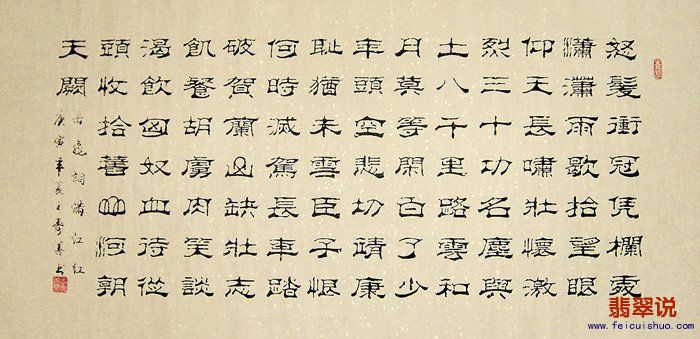 怒髮衝冠凭欄處
瀟瀟雨歇抬望眼
仰天長嘯壯懷激
烈三十功名塵與
土八千里路雲和
月莫等閑白了少
年頭空悲切靖康
耻猶未雪臣子恨
何時滅駕長車踏
破賀蘭山缺壯志
飢餐胡虜肉笑談
渴飲匈奴血待從
頭收拾舊山河朝
天闕
岳飛詞滿江紅
庚寅年夏王壽書
翡翠说
www.feicuishuo.com